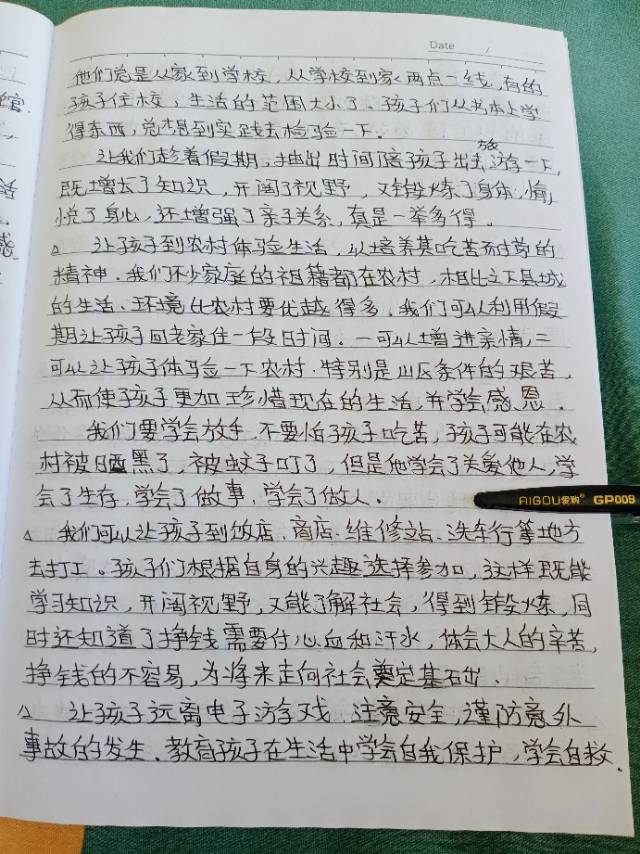 Date /
他们总是从家到学校,从学校到家,两点一线,有的
孩子住校,生活的范围太小了。孩子们从书本上学
得东西,总想到实践去检验一下。
让我们趁着假期,抽出时间陪孩子出去游一下,
既增长了知识,开阔了视野,又锻炼了身体,愉
悦了身心,还增强了亲子关系,真是一举多得。
△ 让孩子到农村体验生活,以培养其吃苦耐劳的
精神。我们不少家庭的祖籍都在农村,相比之下县城
的生活、环境比农村要优越得多。我们可以利用假
期让孩子回老家住一段时间。一可以增进亲情,二
可以让孩子体验一下农村.特别是山区条件的艰苦,
从而使孩子更加珍惜现在的生活,并学会感恩。
我们要学会放手,不要怕孩子吃苦,孩子可能在农
村被晒黑了,被蚊子叮了,但是他学会了关爱他人,学
会了生存,学会了做事,学会了做人.
△ 我们可以让孩子到饭店、商店、维修站、洗车行等地方
去打工。孩子们根据自身的兴趣选择参加,这样既能
学习知识,开阔视野,又能了解社会,得到锻炼,同
时还知道了挣钱需要付心血和汗水,体会大人的辛苦,
挣钱的不容易,为将来走向社会奠定基石出.
△ 让孩子远离电子游戏.注意安全,谨防意外
事故的发生.教育孩子在生活中学会自我保护,学会自救.
AIGOU爱购 GP009